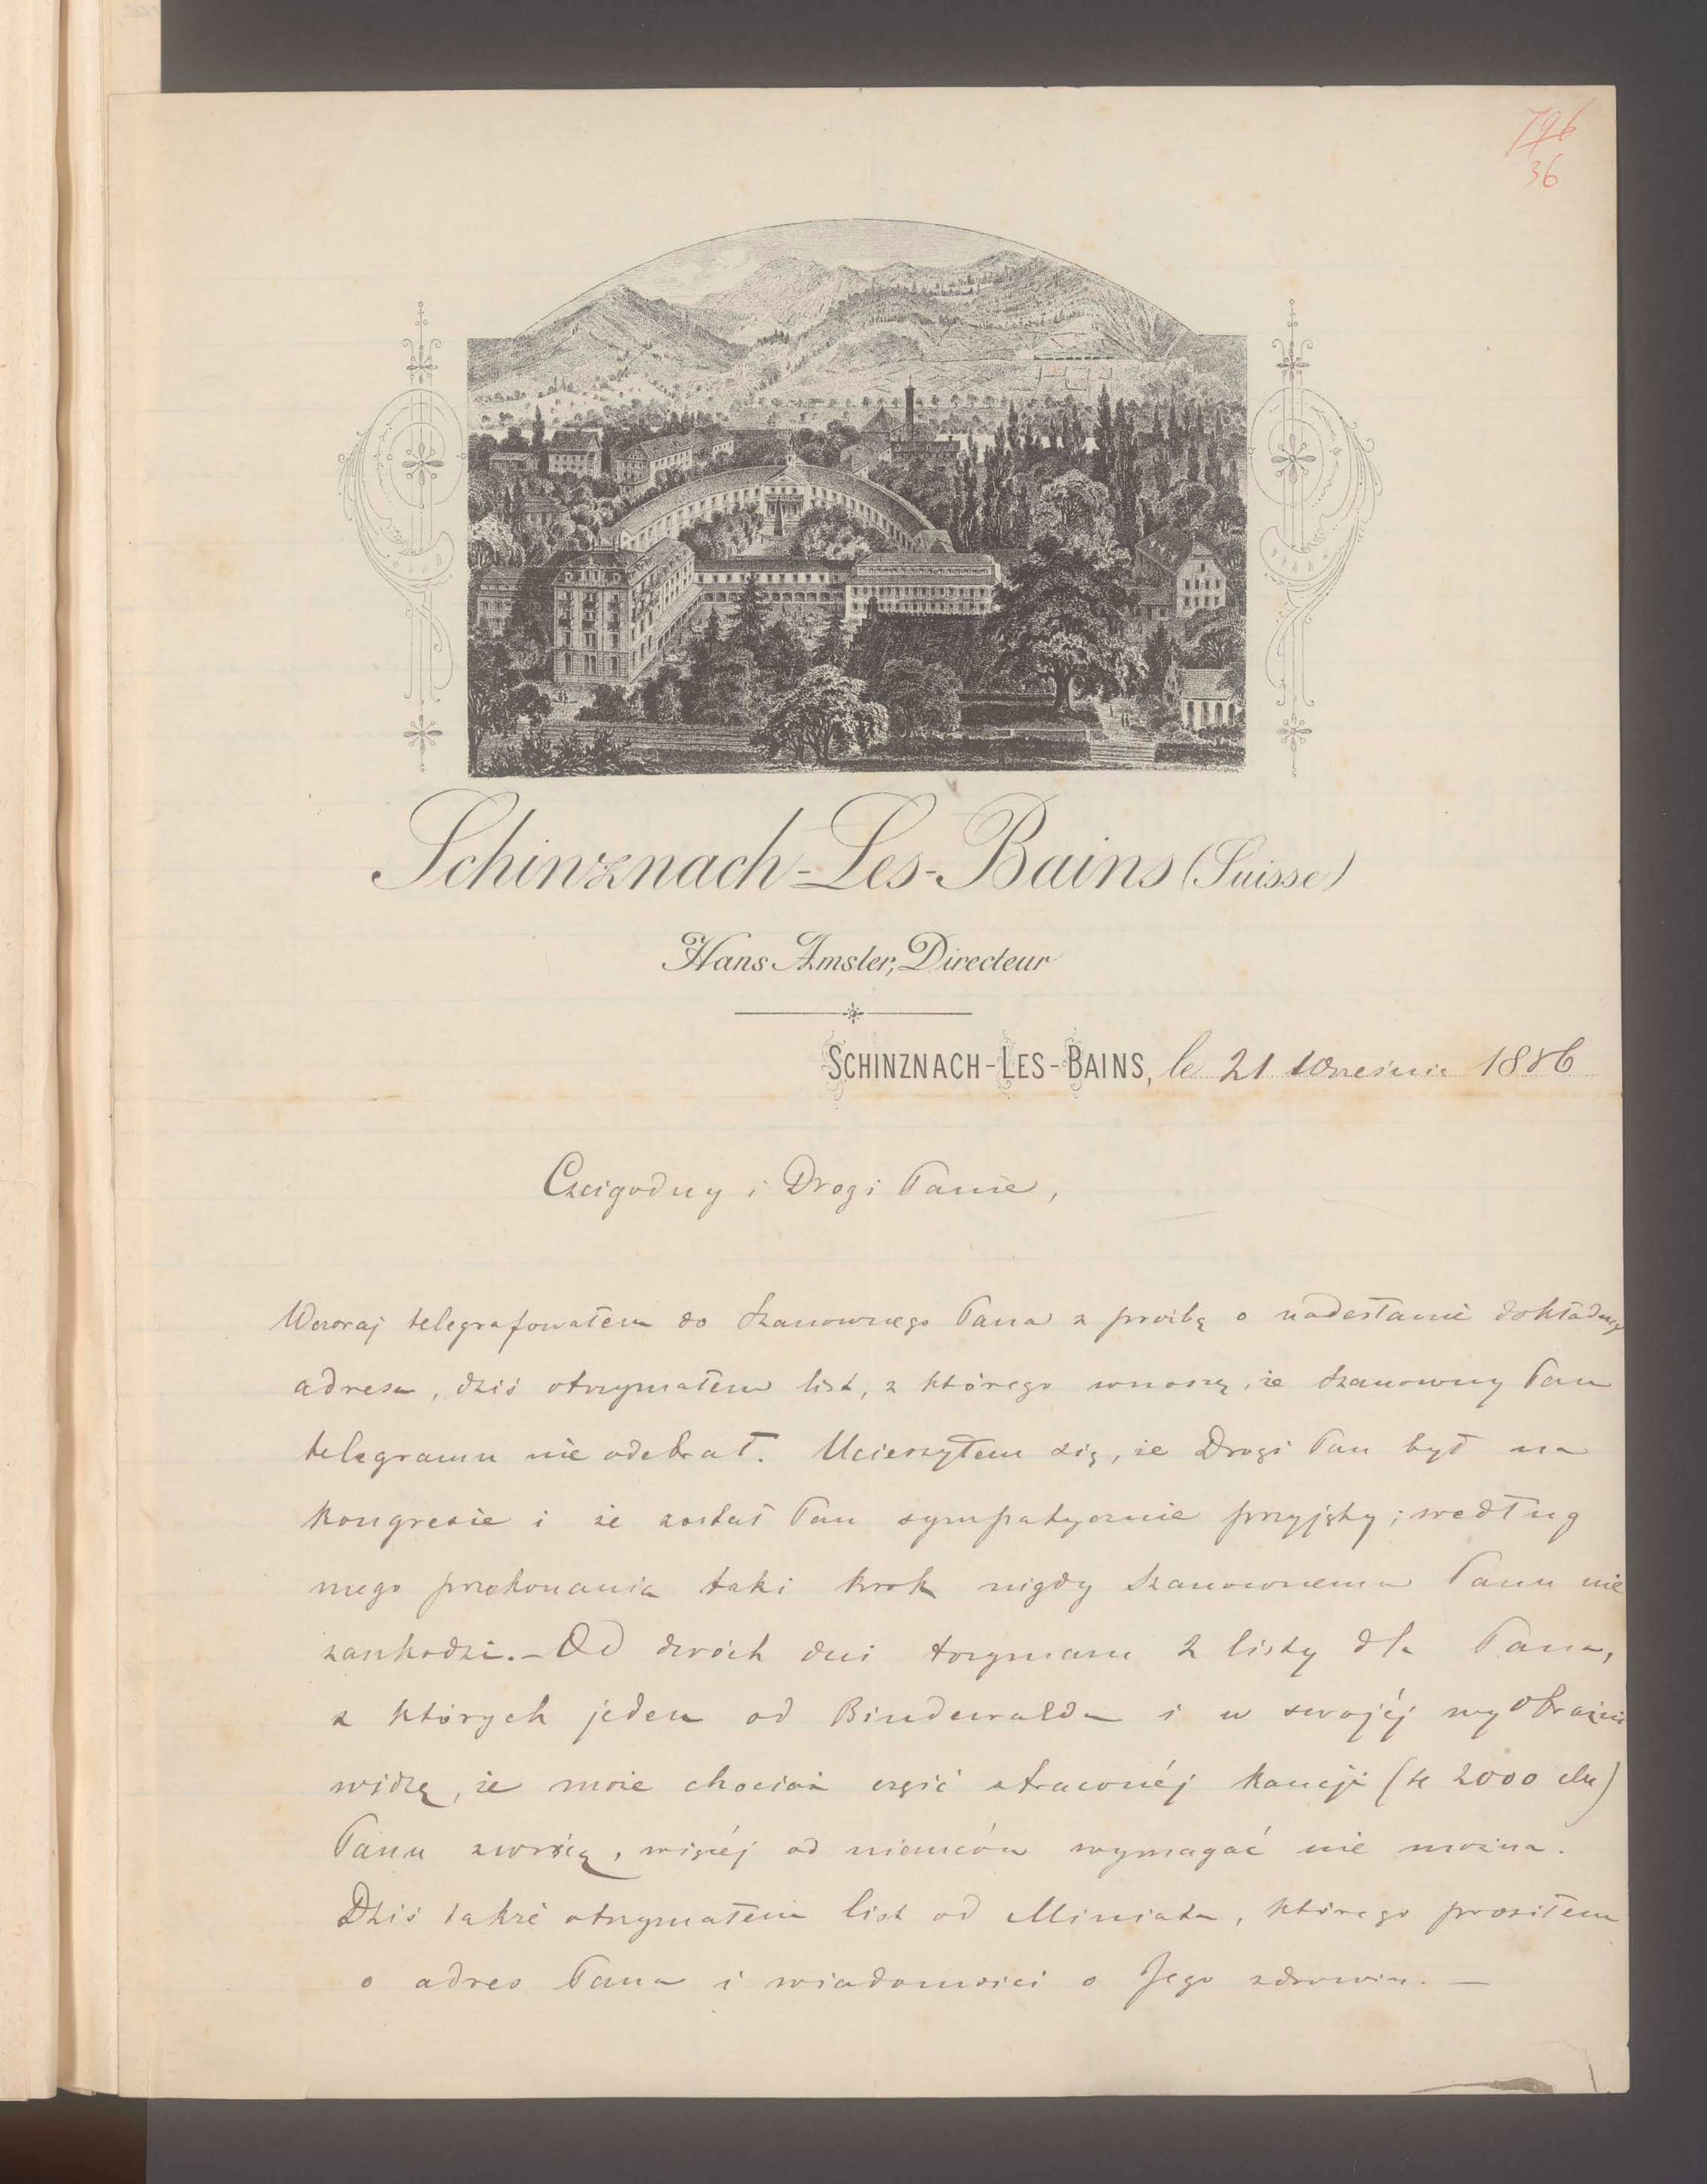 796
36
Schinznach-Les-Bains (Suisse)
Hans Amsler, Directeur
SCHINZNACH-LES-BAINS, le 21 Września 1886
Czcigodny i Drogi Panie,
Wczoraj telegrafowałem do Szanownego Pana z prośbą o nadesłanie dokładnego
adresu, dziś otrzymałem list, z którego wnoszę, że Szanowny Pan
telegramu nie odebrał. Ucieszyłem się, że Drogi Pan był na
Kongresie i że został Pan sympatycznie przyjęty; według
mego przekonania taki krok nigdy Szanownemu Panu nie
zaszkodzi. – Od dwóch dni trzymam 2 listy dla Pana,
z których jeden od Bindewalda i w swojéj wyobraźni
widzę, że może chociaż część straconéj Kaucji (te 2000 )
Panu zwrócą, więcéj od niemców wymagać nie można.
Dziś także otrzymałem list od Miniata, którego prosiłem
o adres Pana i wiadomości o Jego zdrowiu. —